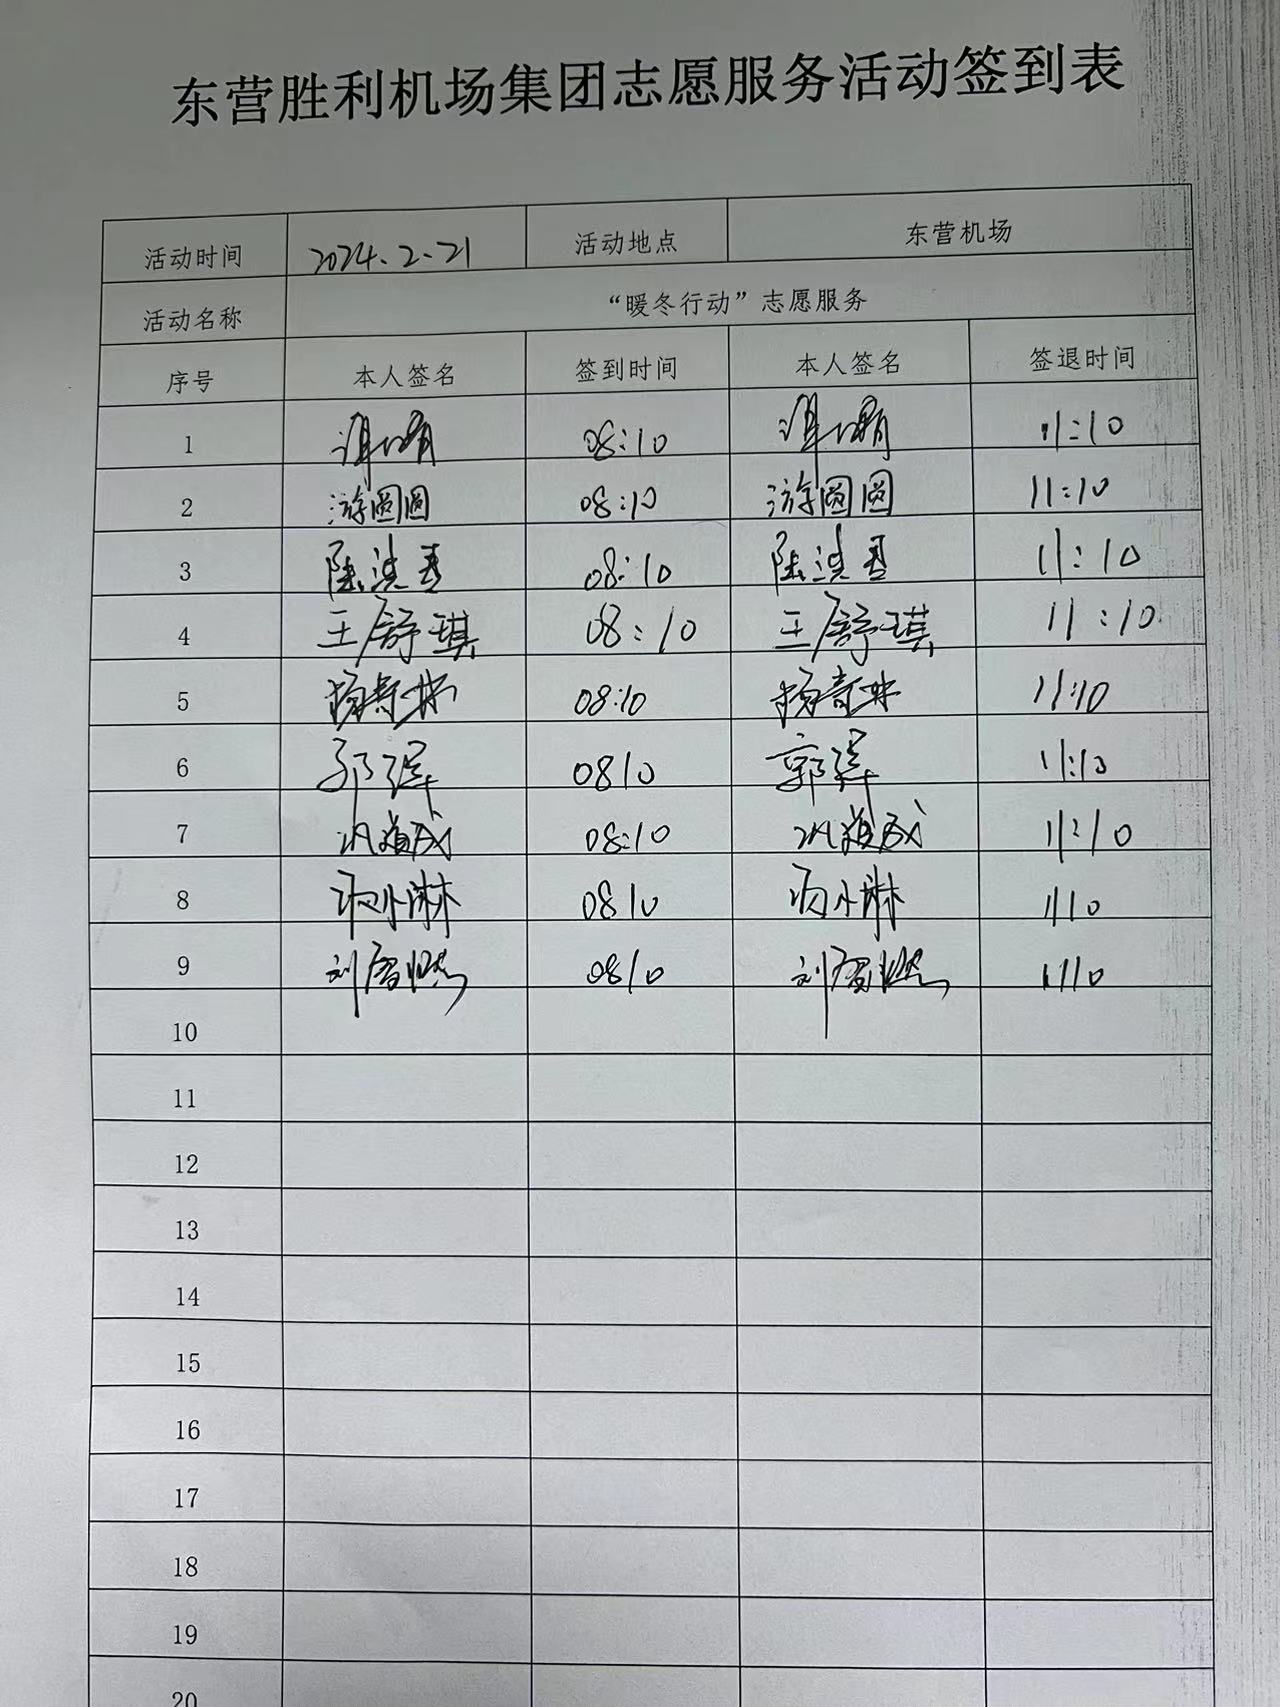 东营胜利机场集团志愿服务活动签到表
活动时间 2024.2.21 活动地点 东营机场
活动名称 “暖冬行动”志愿服务
序号 本人签名 签到时间 本人签名 签退时间
1 08:10 11:10
2 游圆圆 08:10 游圆圆 11:10
3 08:10 11:10
4 王舒琪 08:10 王舒琪 11:10
5 08:10 11:10
6 0810 11:10
7 08:10 11:10
8 0810 1110
9 0810 1110
10
11
12
13
14
15
16
17
18
19
20